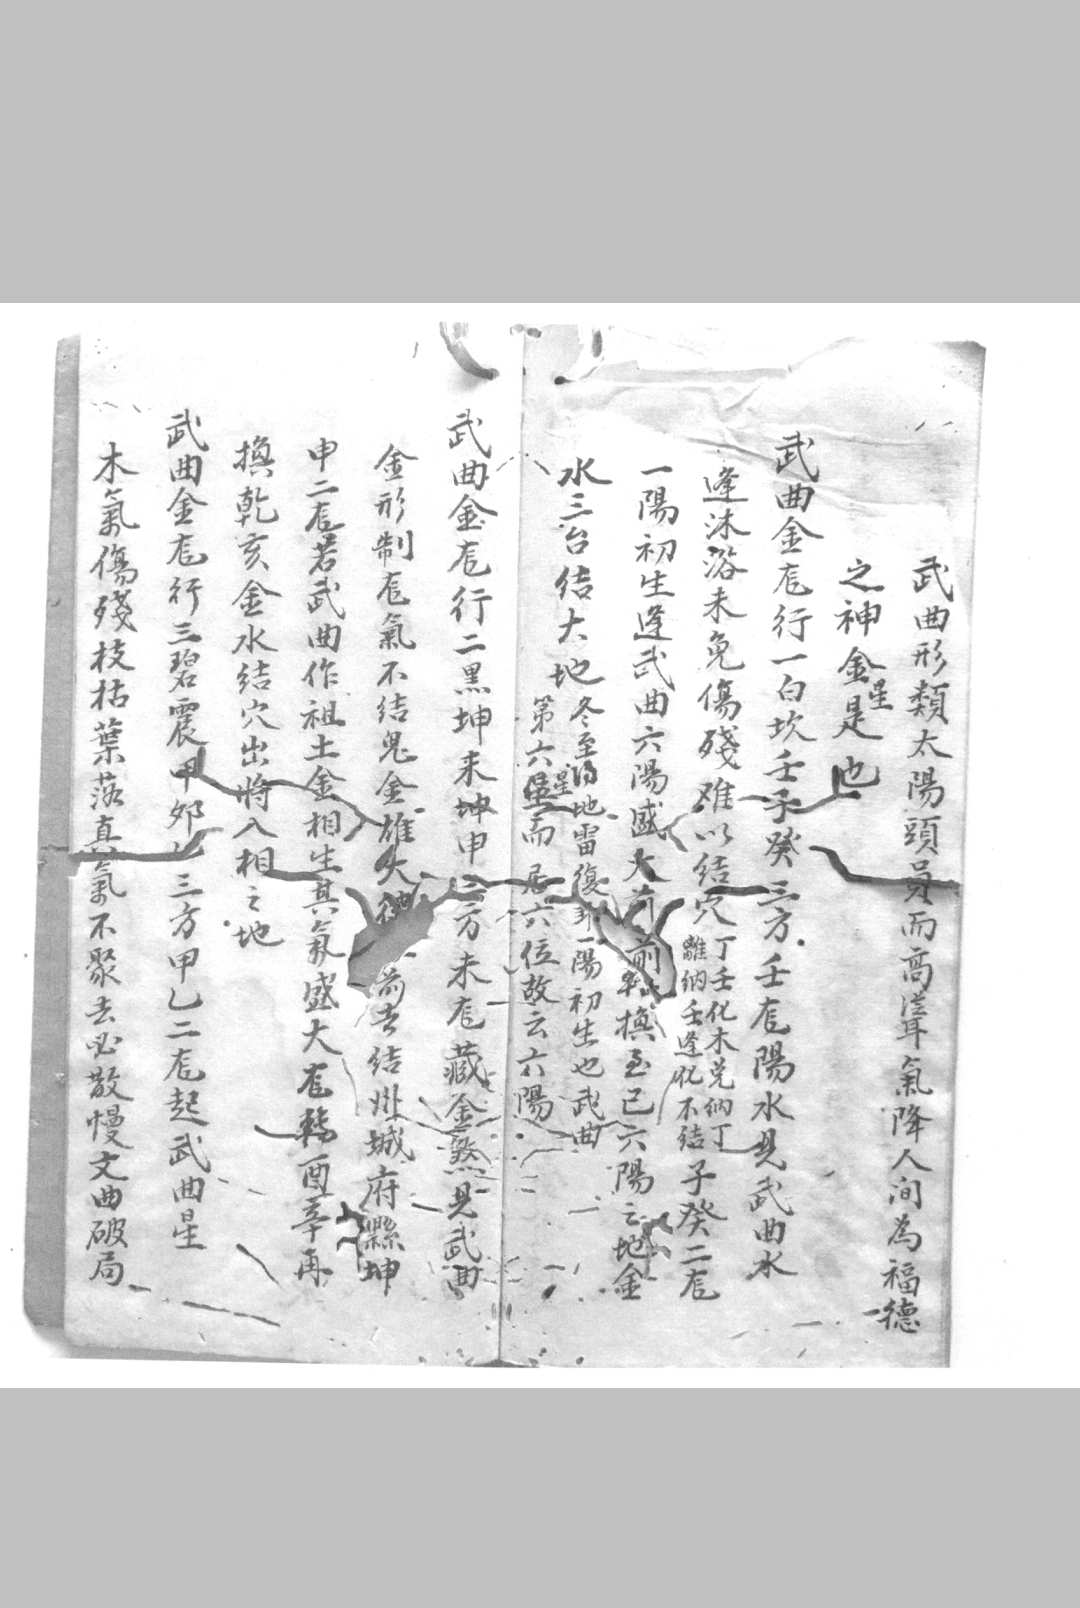 武曲形類太陽頭員而高聳氣降人间為福德
之神金星是也
武曲金龙行一白坎壬子癸三方壬龙陽水見武曲水
逢沐浴未免傷殘难以结穴
丁壬化木兑納丁
離納壬逢化不结
子癸二龙
一陽初生逢武曲六陽盛大前轉換至巳六陽云地金
水三台结大地
冬至得地雷復卦一陽初生也武曲
第六星而居六位故云六陽
武曲金龙行二黑坤未坤申三方未龙藏金煞見武曲
金形制龙氣不结鬼金雄火前去结州城府縣坤
申二龙若武曲作祖土金相生其氣盛大龙轉酉辛再
換乾亥金水结穴出將入相之地
武曲金龙行三碧震甲卯乙三方甲乙二龙起武曲星
木氣傷殘枝枯葉落真氣不聚去必散慢文曲破局